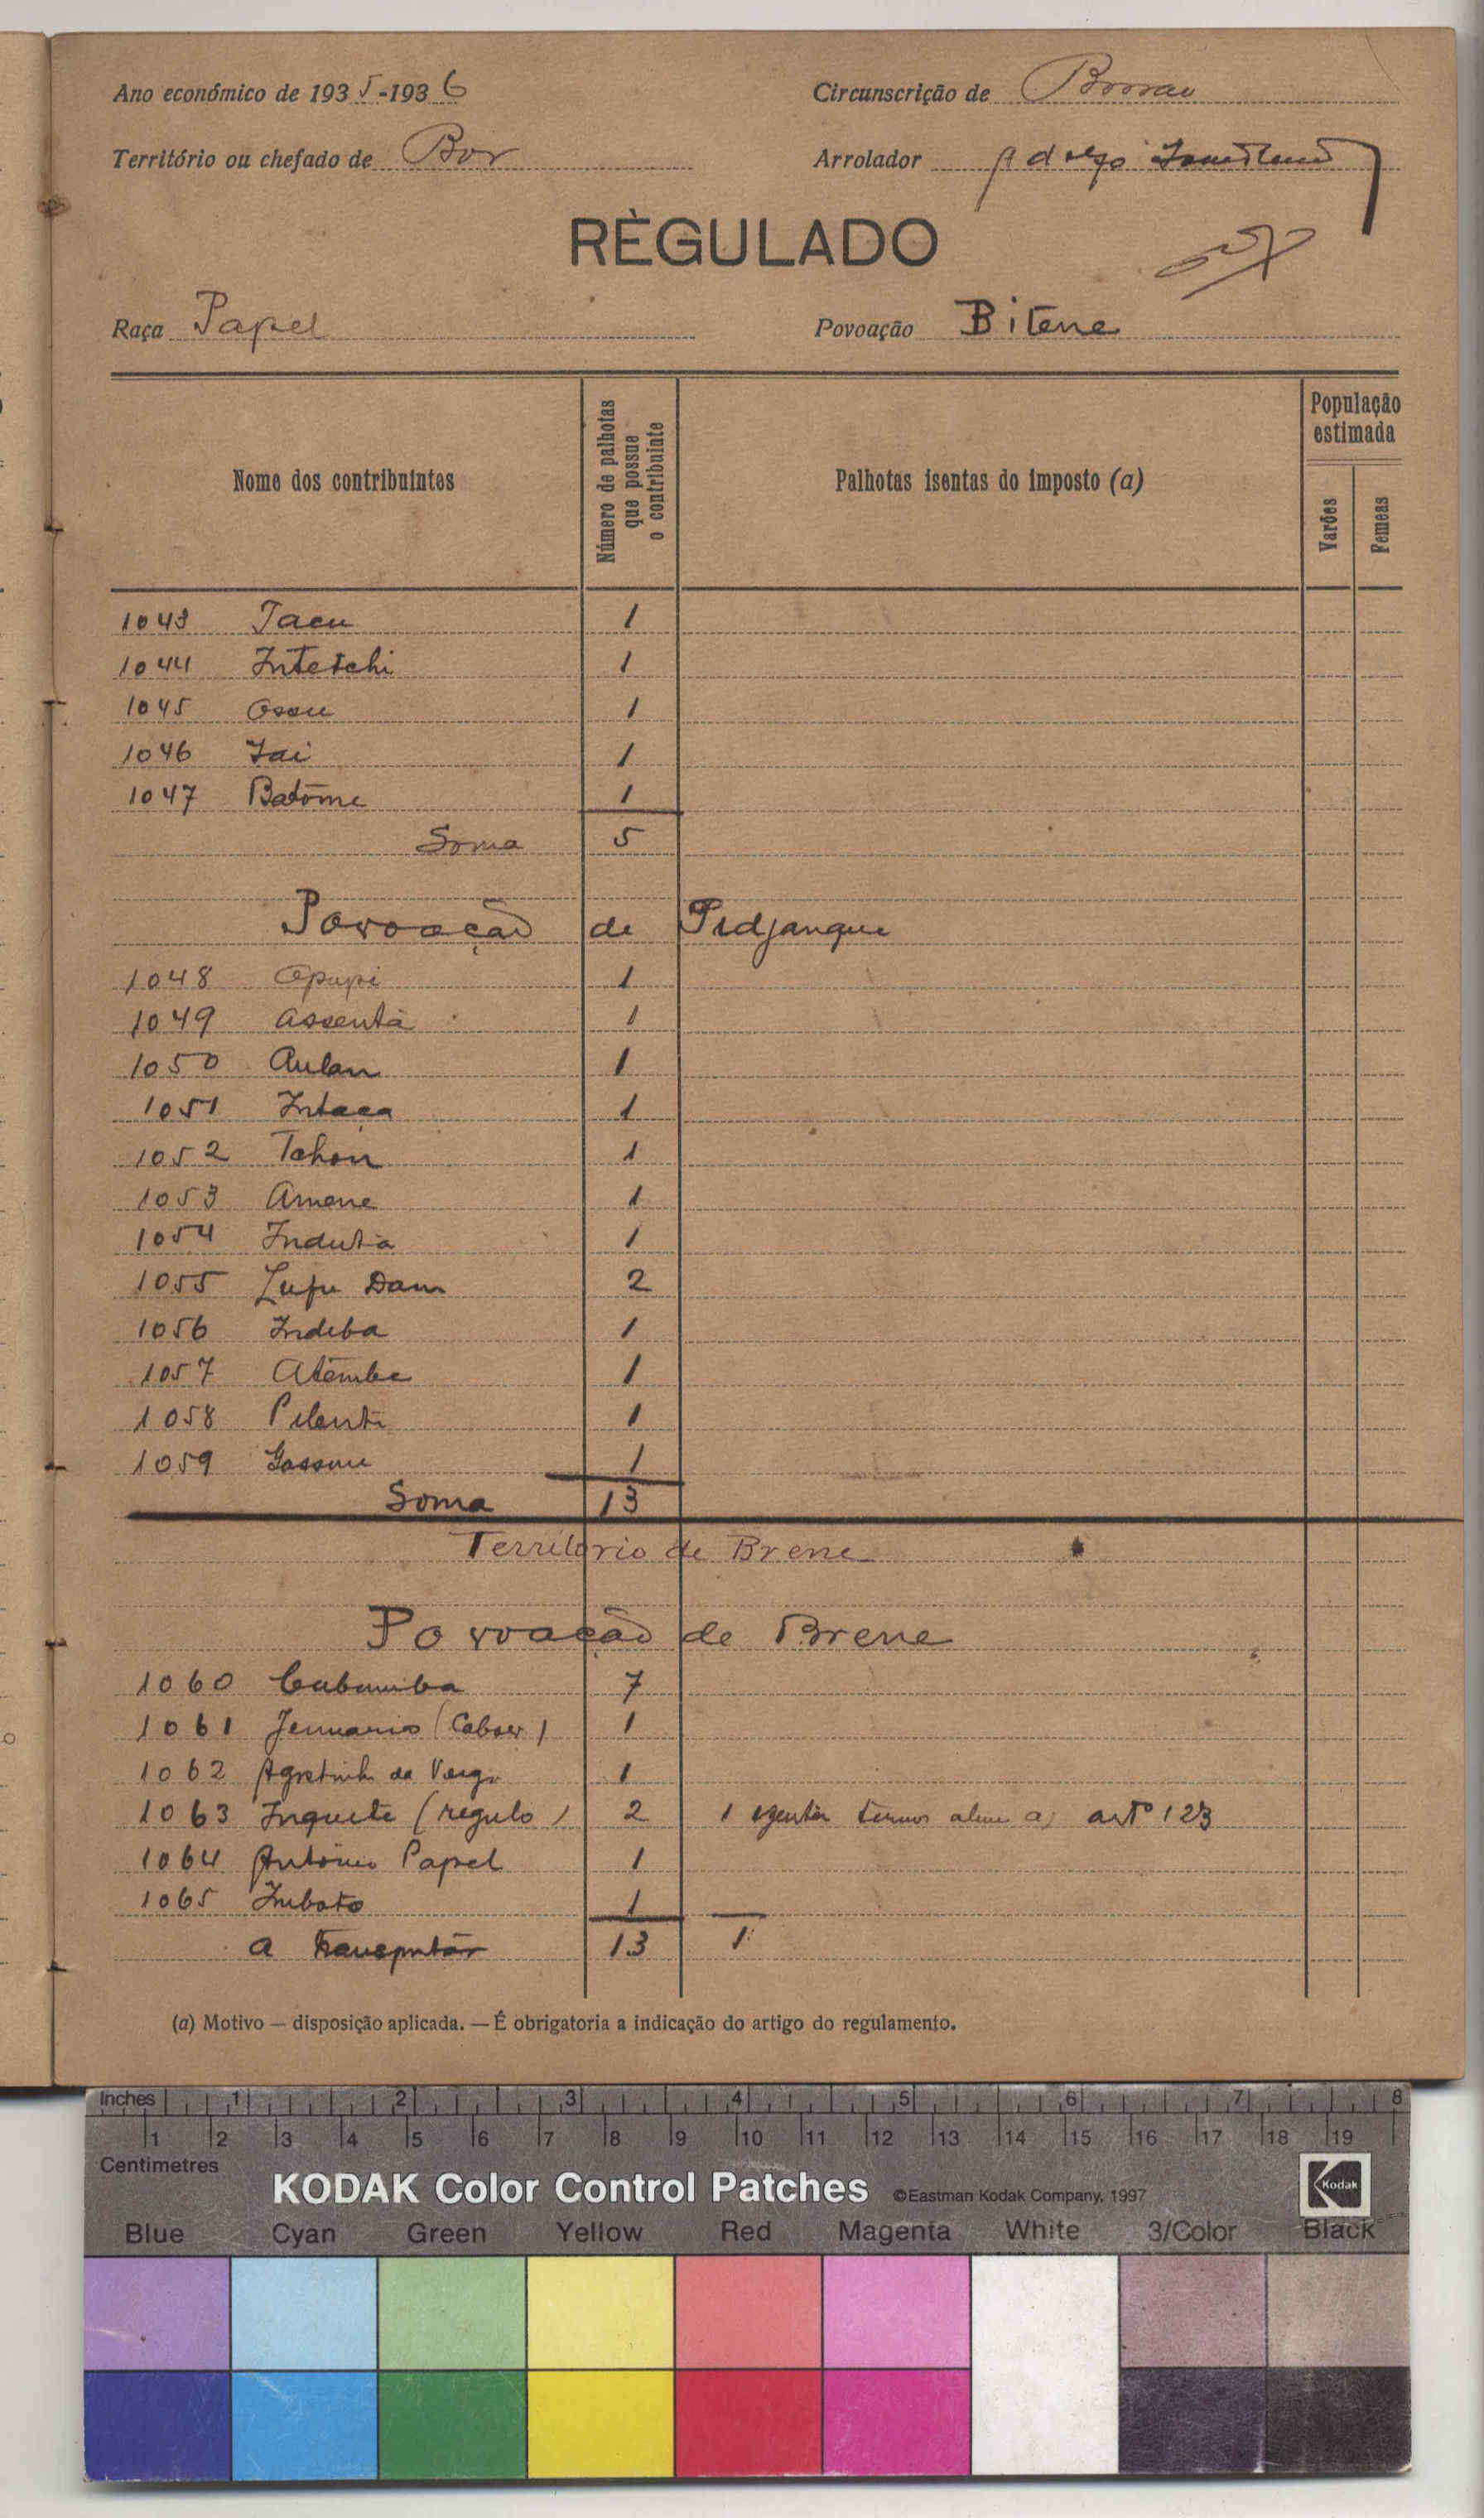 Ano económico de 1935-1936 Circunscrição de
Território ou chefado de Bor Arrolador
RÈGULADO
Raça Papel Povoação Bitene
Nome dos contribuintes Número de palhotas que possue o contribuinte Palhotas isentas do imposto (a) População estimada Varões Femeas
1043 Tacu 1
1044 Intetchi 1
1045 Ossu 1
1046 1
1047 Batôme 1
Soma 5
Povoação de Pidjangue
1048 Opupi 1
1049 Assenta 1
1050 Aulan 1
1051 Intaca 1
1052 1
1053 Amene 1
1054 Induta 1
1055 2
1056 Indeba 1
1057 Atêmbe 1
1058 1
1059 1
Soma 13
Território de Brene
Povoação de Brene
1060 7
1061 1
1062 1
1063 Inquete (regulo) 2 1 artº 123
1064 António Papel 1
1065 Imboto 1
A transportar 13 1
(a) Motivo — disposição aplicada. — É obrigatoria a indicação do artigo do regulamento.
Inches 1 2 3 4 5 6 7 8
1 2 3 4 5 6 7 8 9 10 11 12 13 14 15 16 17 18 19
Centimetres
KODAK Color Control Patches ©Eastman Kodak Company, 1997 Kodak
Blue Cyan Green Yellow Red Magenta White 3/Color Black